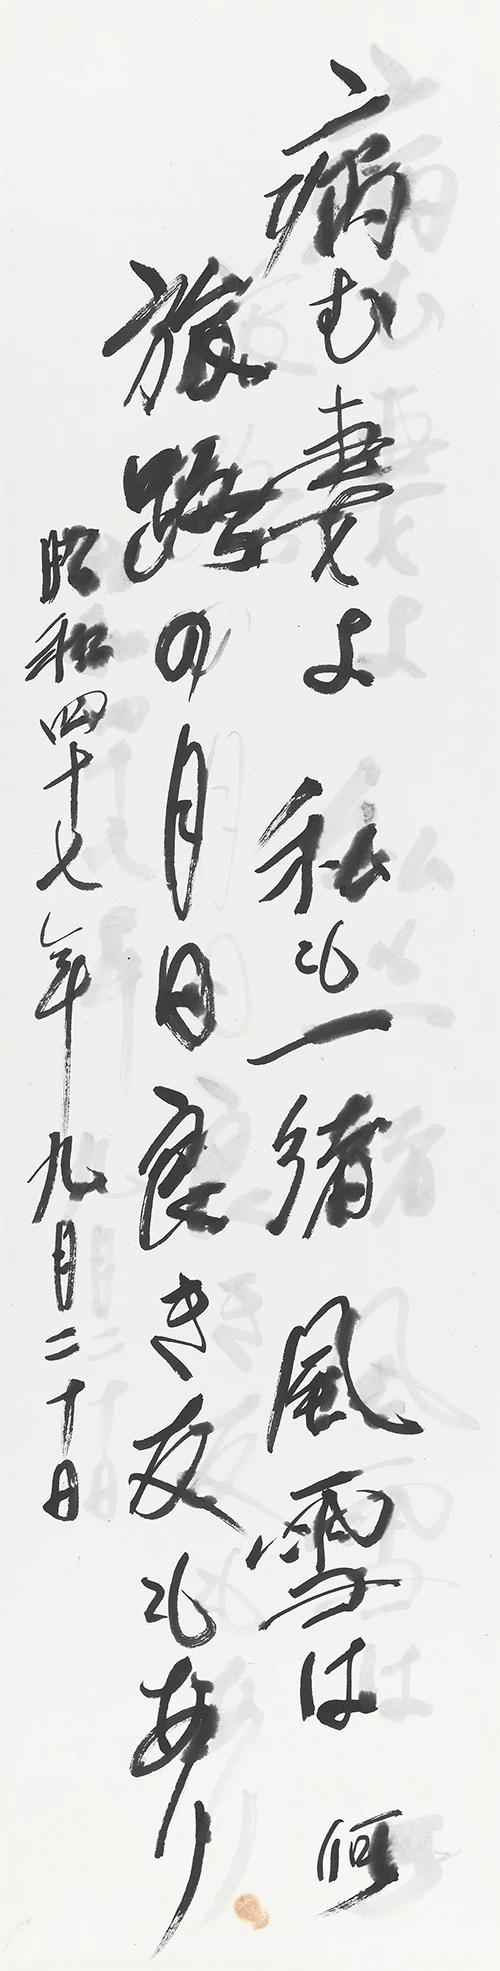 病む妻よ 私も一緒 風雪は 何
旅路の月日良き友もあり
昭和四十七年九月二十日